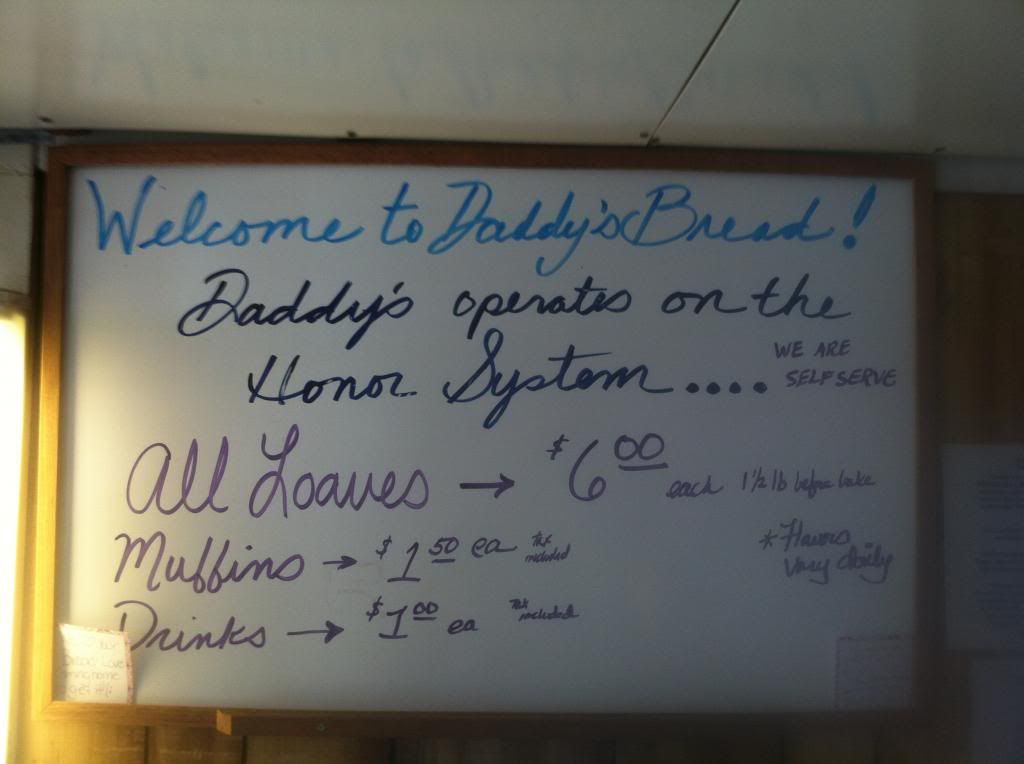 Welcome to Daddy's Bread!
Daddy's operates on the
Honor System....
WE ARE
SELF SERVE
All Loaves → $6.00 each 1 1/2 lb before bake
Muffins → $1.50 ea Tax included
* Flavors
vary daily
Drinks → $1.00 ea Tax included
Bread Love
home